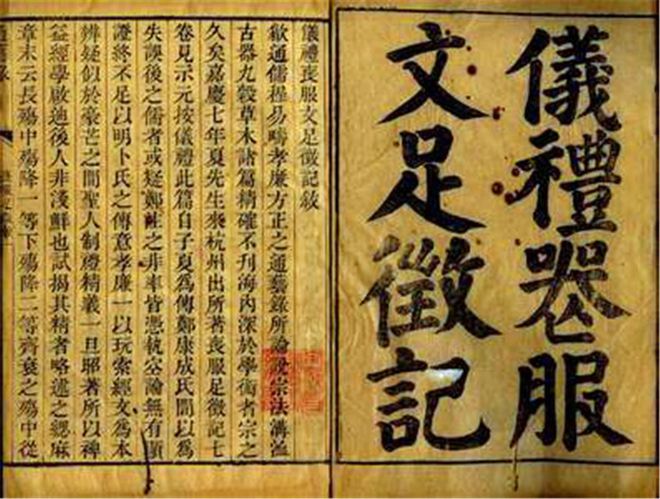 儀禮喪服
文足徵記
儀禮喪服文足徵記敘
歙通儒程易疇孝廉方正之通藝錄所論說宗法溝洫
古器九穀草木諸篇精確不刊海內深於學術者宗之
久矣嘉慶七年夏先生來杭州出所著喪服足徵記七
卷見示元按儀禮此篇自子夏爲傳鄭康成氏間以爲
失誤後之儒者或疑鄭註之非率皆憑執空論無有顯
證終不足以明卜氏之傳意孝廉一以玩索經文爲本
辨疑似於豪芒之間聖人制禮精義一旦昭著所以裨
益經學啟迪後人非淺鮮也試揭其精者略述之緦麻
章末云長殤中殤降一等下殤降二等齊衰之殤中從